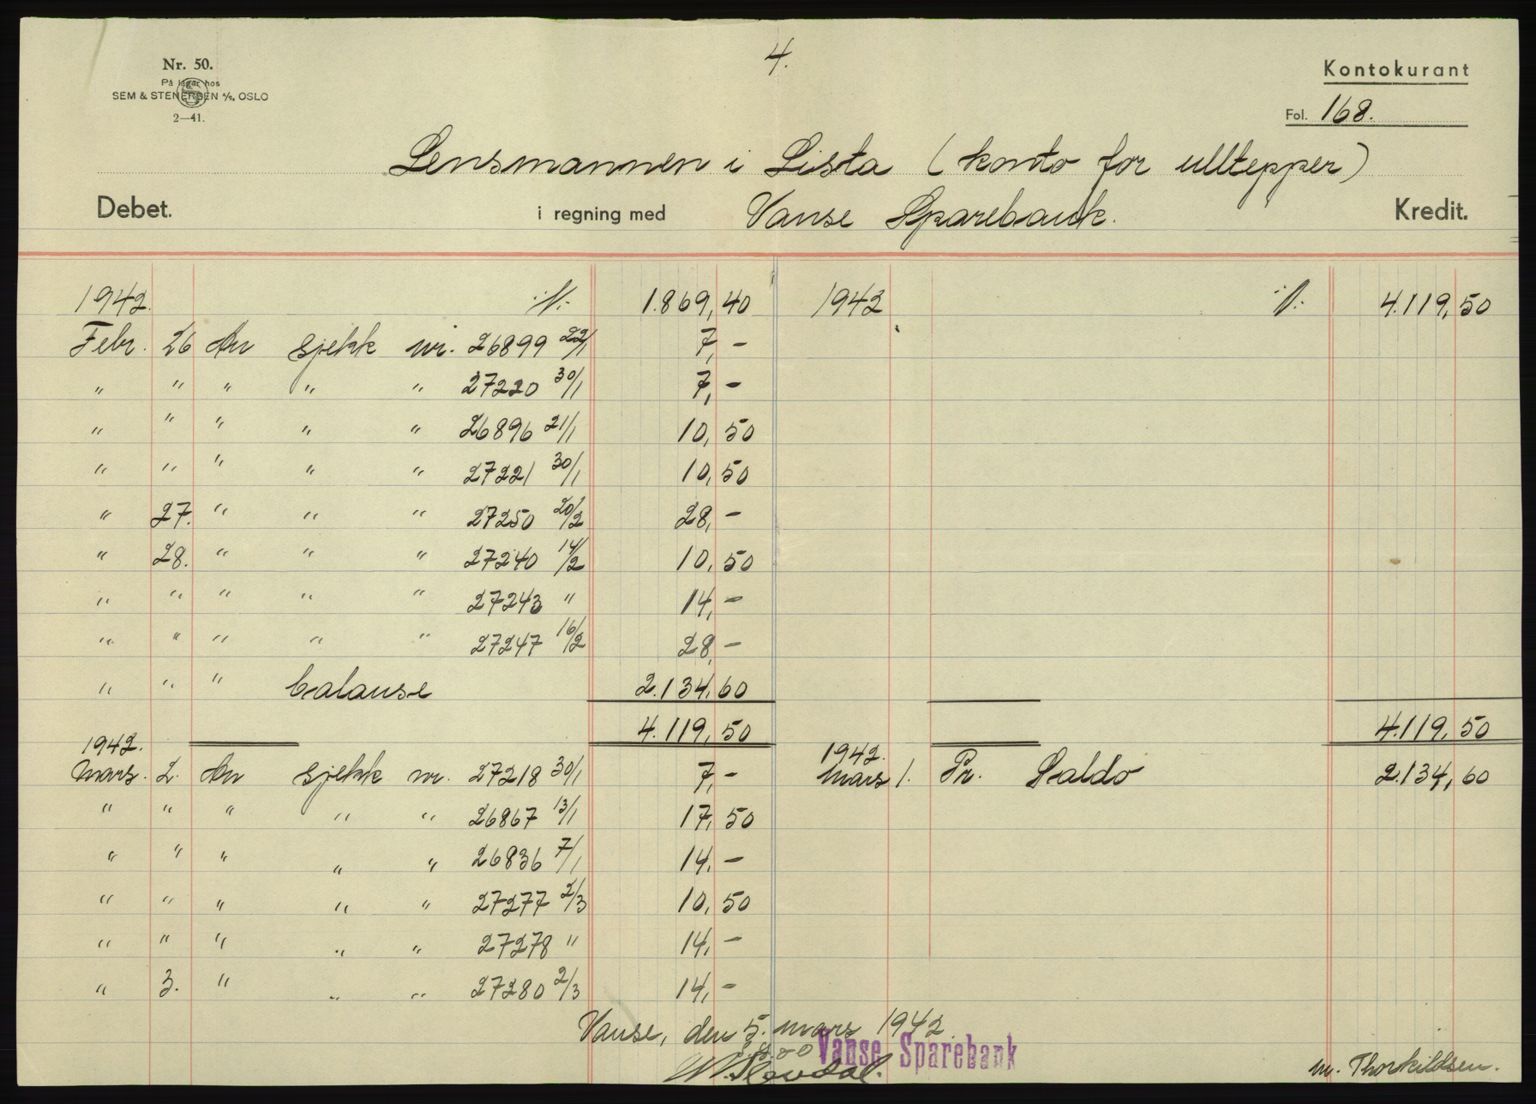 4.
Nr. 50.
På lager hos
SEM & STENERSEN A/S, OSLO
2—41.
Kontokurant
Fol. 168.
Lensmannen i Lista (konto for ulltepper)
Debet. i regning med Vanse Sparebank. Kredit.
1942 ·/· 1.869,40 1942 ·/· 4.119,50
Febr. 26 An sjekk nr. 26899 22/1 7,-
" " " " " 27220 30/1 7,-
" " " " " 26896 21/1 10,50
" " " " " 27221 30/1 10,50
" 27. " " " 27250 20/2 28,-
" 28. " " " 27240 14/2 10,50
" " " " " 27243 " 14,-
" " " " " 27247 16/2 28,-
" " " balanse 2.134,60
4.119,50 4.119,50
1942. 1942.
Mars. 2. An sjekk nr. 27218 30/1 7,- Mars 1. Pr. Saldo 2.134,60
" " " " " 26867 13/1 17,50
" " " " " 26836 7/1 14,-
" " " " " 27277 2/3 10,50
" " " " " 27278 " 14,-
" 3. " " " 27280 2/3 14,-
Vanse, den 5. mars 1942
Vanse Sparebank
m. Thorkildsen.